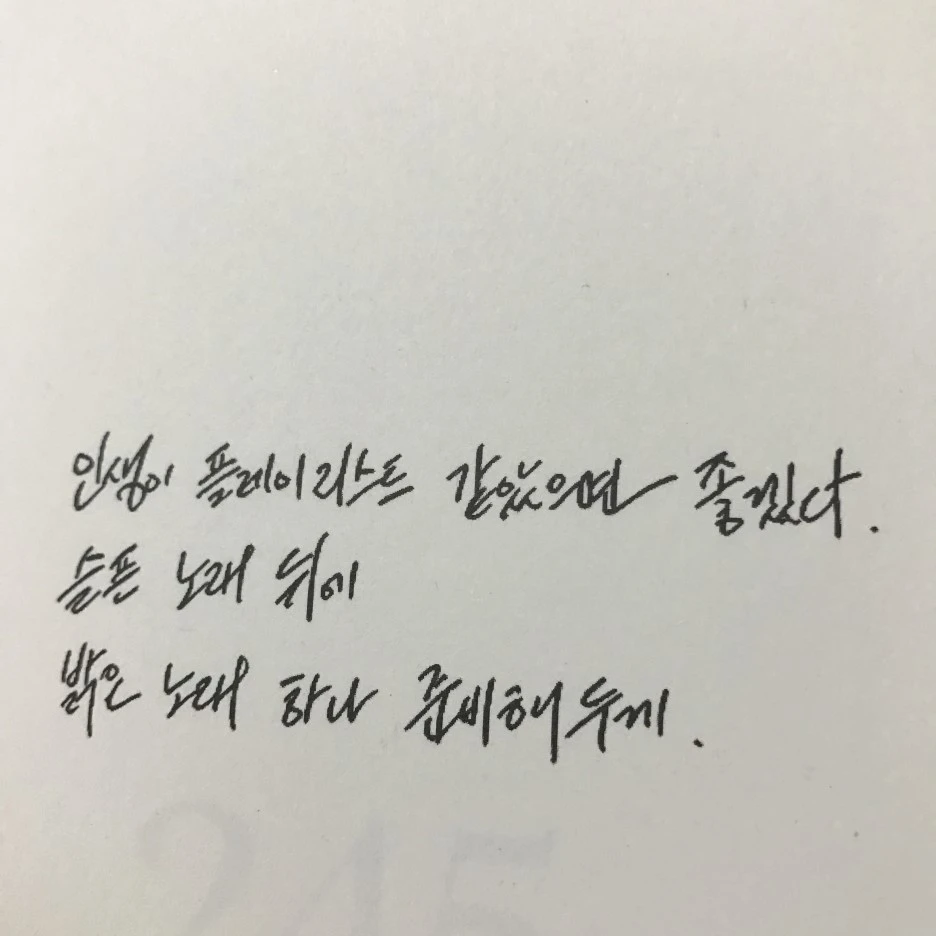 인생이 플레이리스트 같았으면 좋겠다.
슬픈 노래 뒤에
밝은 노래 하나 준비해두게.
245